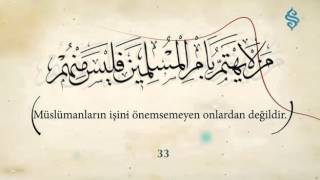 من لا يهتم بأمر المسلمين فليس منهم
(Müslümanların işini önemsemeyen onlardan değildir.)
33